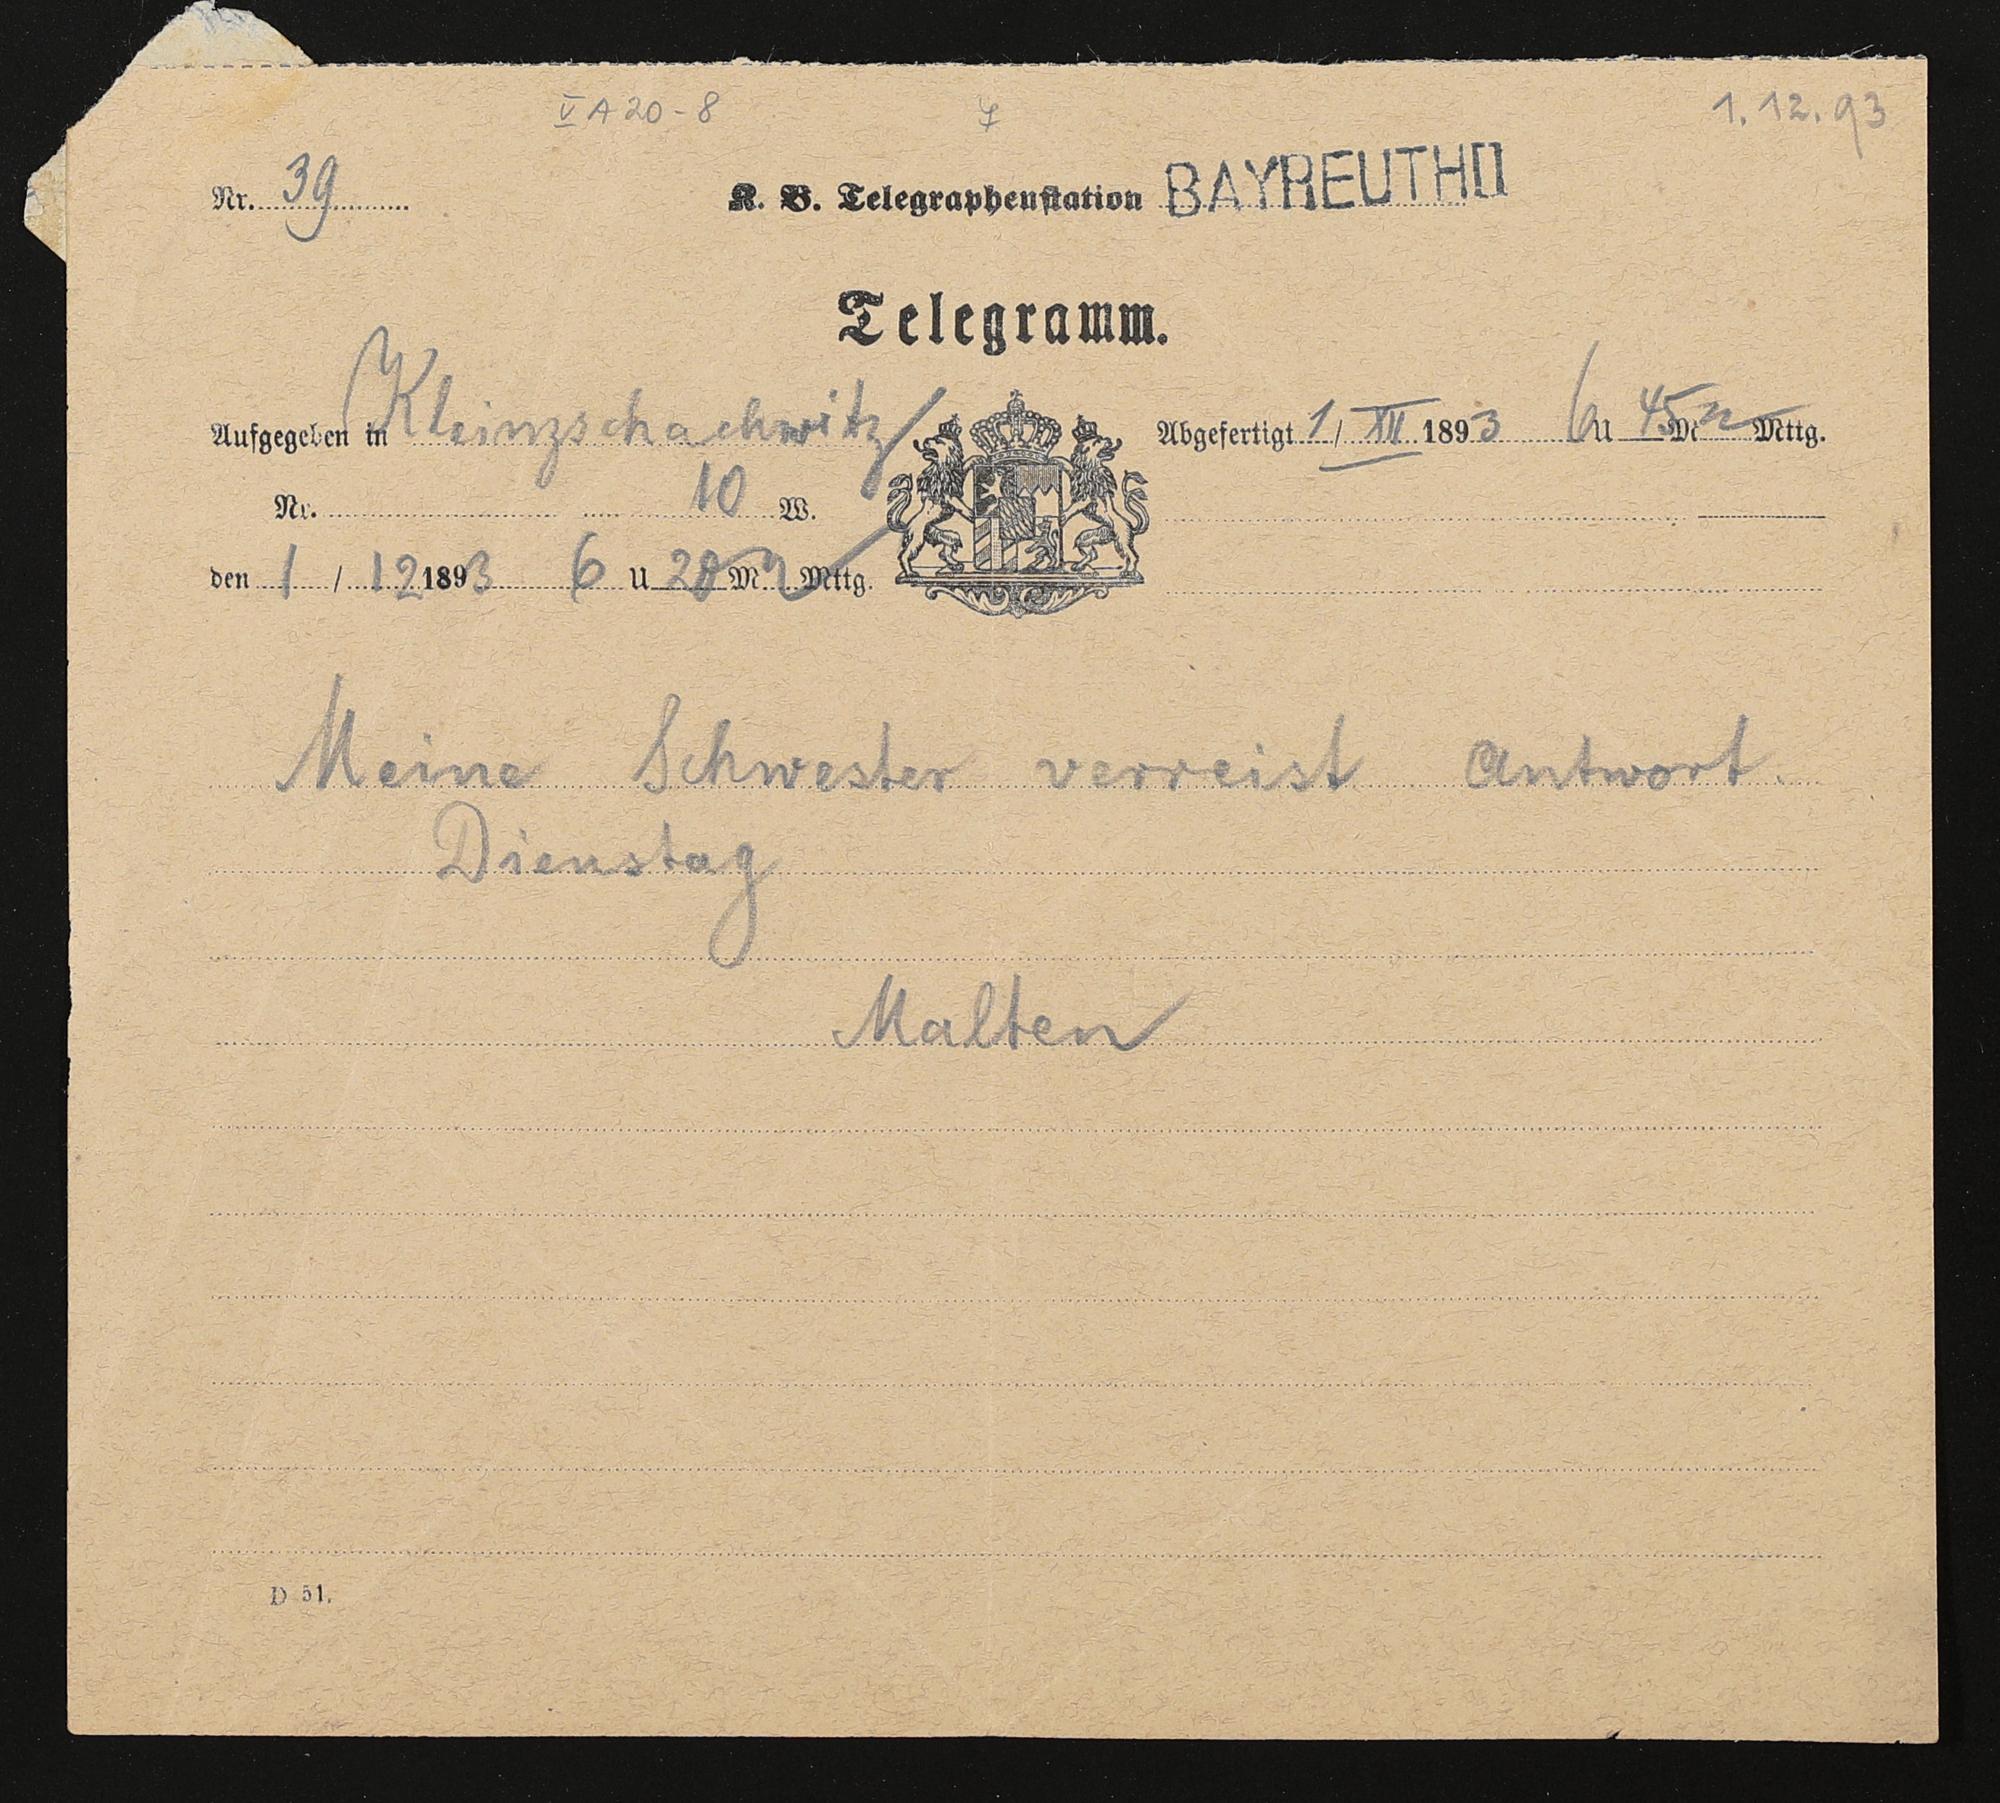 V A 20-8 7 1.12.93
Nr. 39 K. B. Telegraphenstation BAYREUTH II
Telegramm.
Aufgegeben in Kleinzschachwitz Abgefertigt 1/XII 1893 6 U 45 M n Mttg.
Nr. 10 W.
den 1/12 1893 6 U 28 M n Mttg.
Meine Schwester verreist Antwort.
Dienstag
Malten
D 51.